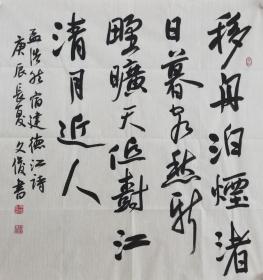 移舟泊煙渚
日暮客愁新
野曠天低樹江
清月近人
孟浩然宿建德江詩
庚辰長夏文俊書